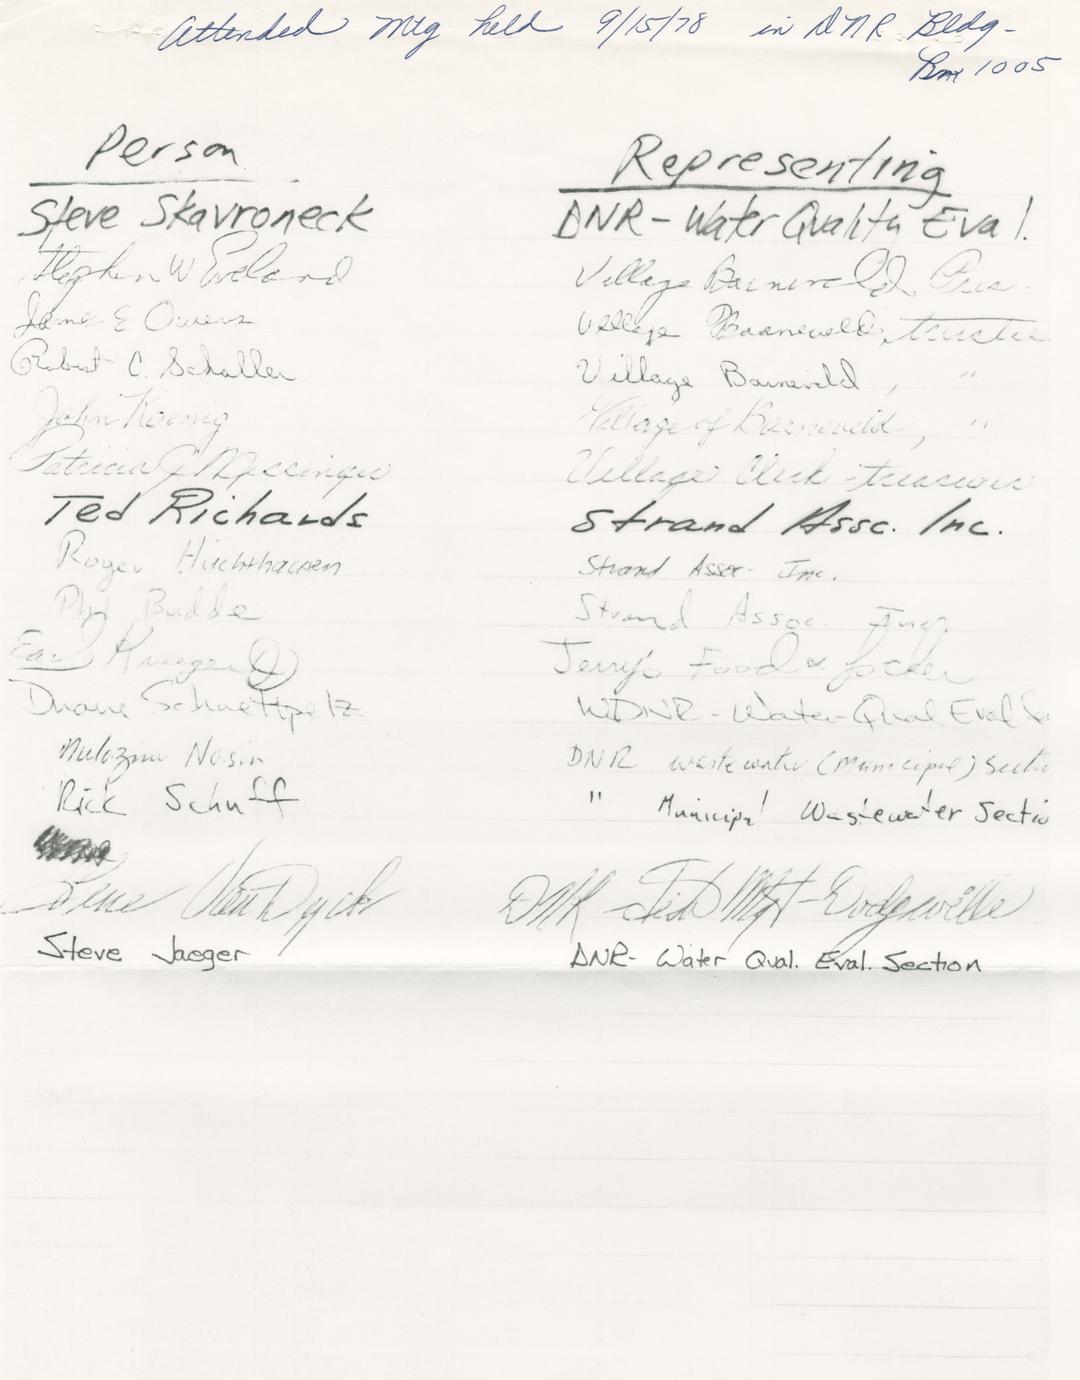 Attended Mtg held 9/15/78 in DNR Bldg-
Rm 1005
Person Representing
Steve Skavroneck DNR-Water Quality Eval.
Stephen W Eveland Village Barneveld, Pres.
James E Owens Village Barneveld, trustee
Robert C. Schaller Village Barneveld, "
John Koenig Village of Barneveld, "
Patricia J Messinger Village Clerk-treasurer
Ted Richards Strand Assc. Inc.
Roger Strand Assoc- Inc.
Phil Budde Strand Assoc. Inc.
Earl Krueger Jerry's Food & Locker
Duane Schuettpelz WDNR-Water-Qual Eval
Nasim DNR wastewater (Municipal) Sectio
Rick Schuff " Municipal Wastewater Sectio
Gene Van Dyck DNR-Fish Mgt-Dodgeville
Steve Jaeger DNR- Water Qual. Eval. Section